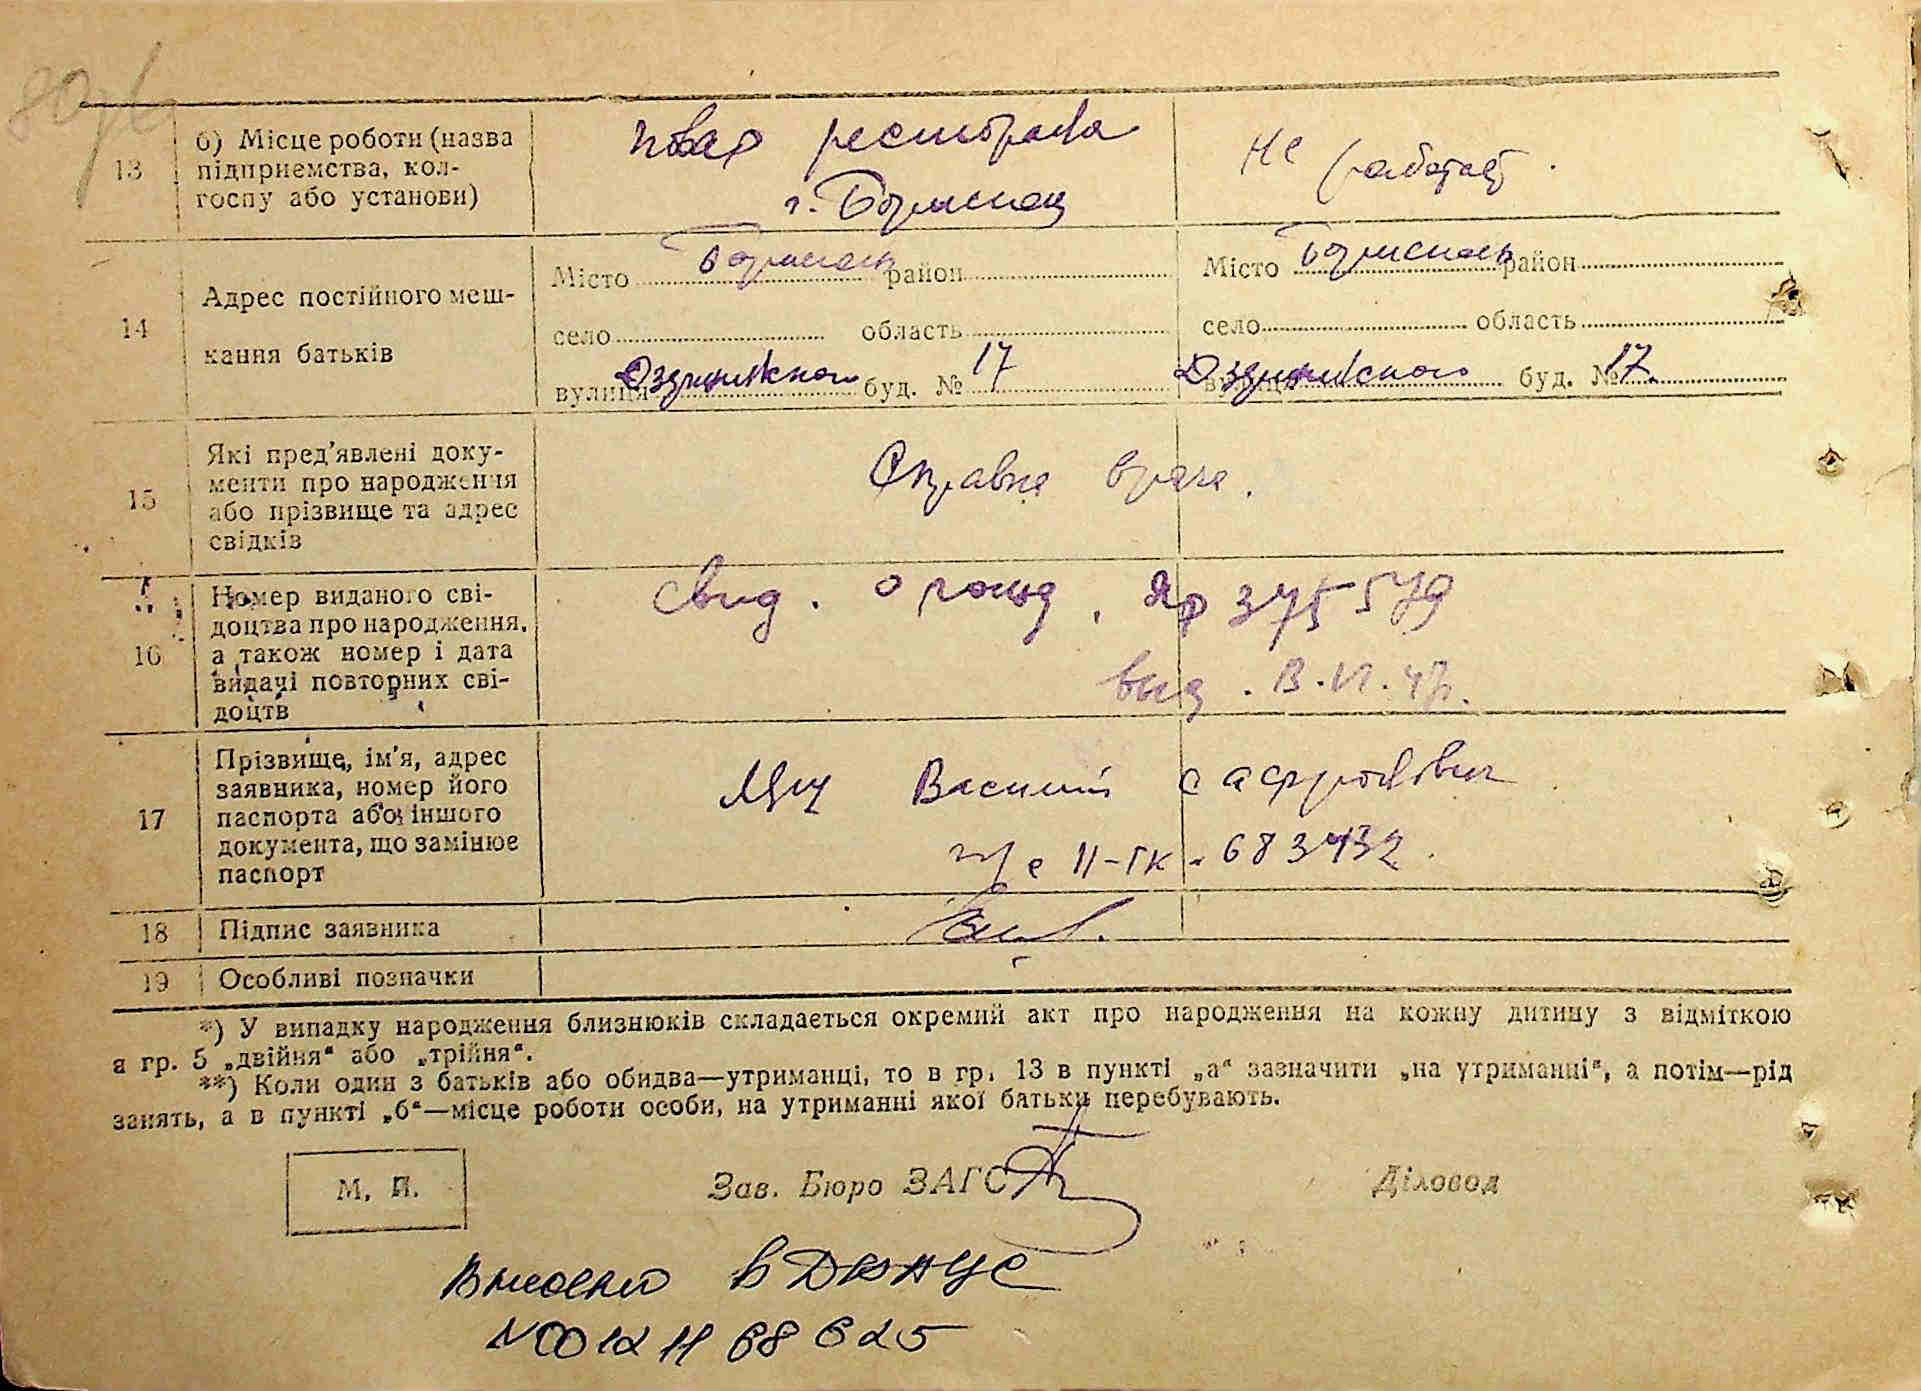 13 б) Місце роботи (назва
підприємства, кол-
госпу або установи)
повар ресторана
г. Бориспол
Не работает.
14 Адрес постійного меш-
кання батьків
Місто Бориспол район
село область
вулиця Дзержинского буд. № 17
Місто Бориспол район
село область
вулиця Дзержинского буд. № 17.
15 Які пред'явлені доку-
менти про народження
або прізвище та адрес
свідків
Справка врача.
16 Номер виданого сві-
доцтва про народження,
а також номер і дата
видачі повторних сві-
доцтв
Свид. о рожд. ЯР 375579
выд.
17 Прізвище, ім'я, адрес
заявника, номер його
паспорта або іншого
документа, що замінює
паспорт
Василий
п/с II-ГК. 683432
18 Підпис заявника
19 Особливі позначки
*) У випадку народження близнюків складається окремий акт про народження на кожну дитину з відміткою
в гр. 5 „двійня“ або „трійня“.
**) Коли один з батьків або обидва—утриманці, то в гр. 13 в пункті „а“ зазначити „на утриманні“, а потім—рід
занять, а в пункті „б“—місце роботи особи, на утриманні якої батьки перебувають.
М. П.
Зав. Бюро ЗАГС
Діловод
Внесено в ДРАЦС
N00121168625